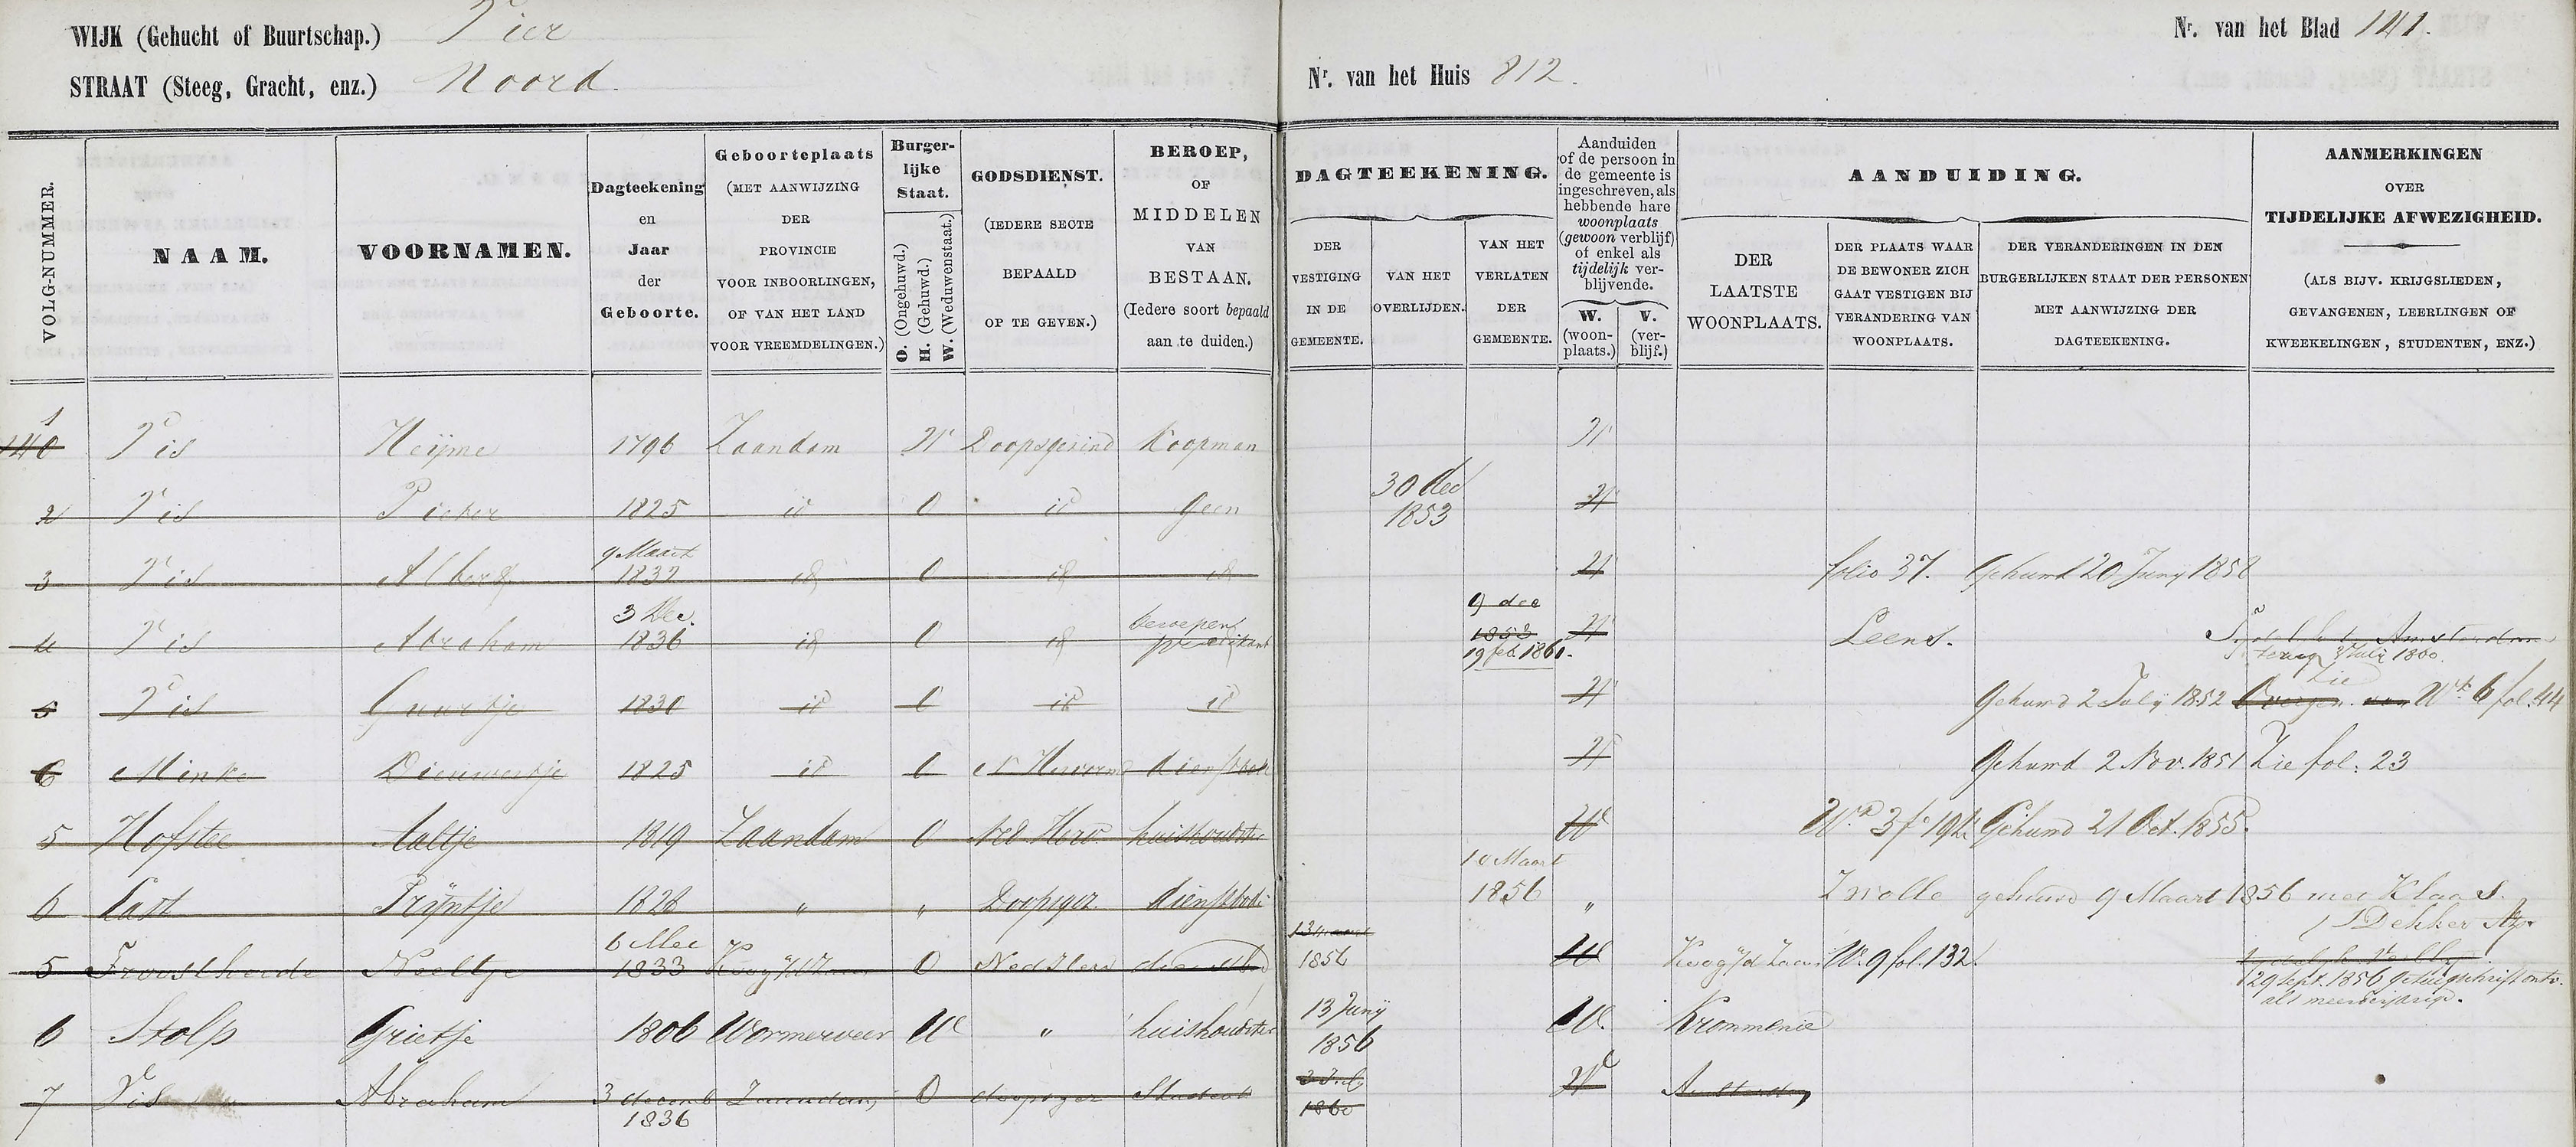 WIJK (Gehucht of Buurtschap.) Vier
Nr. van het Blad 141.
STRAAT (Steeg, Gracht, enz.) Noord
Nr. van het Huis 812.
VOLG-NUMMER.
NAAM.
VOORNAMEN.
Dagteekening
en
Jaar
der
Geboorte.
Geboorteplaats
(MET AANWIJZING
DER
PROVINCIE
VOOR INBOORLINGEN,
OF VAN HET LAND
VOOR VREEMDELINGEN.)
Burger-
lijke
Staat.
O. (Ongehuwd.)
H. (Gehuwd.)
W. (Weduwenstaat.)
GODSDIENST.
(IEDERE SECTE
BEPAALD
OP TE GEVEN.)
BEROEP,
OF
MIDDELEN
VAN
BESTAAN.
(Iedere soort bepaald
aan te duiden.)
DAGTEEKENING.
DER
VESTIGING
IN DE
GEMEENTE.
VAN HET
OVERLIJDEN.
VAN HET
VERLATEN
DER
GEMEENTE.
Aanduiden
of de persoon in
de gemeente is
ingeschreven, als
hebbende hare
woonplaats
(gewoon verblijf)
of enkel als
tijdelijk ver-
blijvende.
W.
(woon-
plaats.)
V.
(ver-
blijf.)
AANDUIDING.
DER
LAATSTE
WOONPLAATS.
DER PLAATS WAAR
DE BEWONER ZICH
GAAT VESTIGEN BIJ
VERANDERING VAN
WOONPLAATS.
DER VERANDERINGEN IN DEN
BURGERLIJKEN STAAT DER PERSONEN
MET AANWIJZING DER
DAGTEEKENING.
AANMERKINGEN
OVER
TIJDELIJKE AFWEZIGHEID.
(ALS BIJV. KRIJGSLIEDEN,
GEVANGENEN, LEERLINGEN OF
KWEEKELINGEN, STUDENTEN, ENZ.)
1
140 Vis Heijme 1796 Zaandam W Doopsgezind Koopman W
30 dec
2 Vis Pieter 1825 id O id Geen 1853 W
9 Maart
3 Vis Albert 1832 id O id id W folio 37. Gehuwd 20 Junij 1858
3 Dec. beroepen 9 dec
4 Vis Abraham 1836 id O id predikant 1853 W Leens. Amsterdam
19 feb. 1861. terug Julij 1860
Zie
5 Vis Guurtje 1830 id O id id W Gehuwd 2 Julij 1852 Overgen. van Wk 6 fol. 44
6 Minke Dieuwertje 1825 id O N Hervormd dienstbode W Gehuwd 2 Nov. 1851 Zie fol: 23
5 Hofstee Aaltje 1819 Zaandam O Ned. Herv. huishoudster W Gehuwd 21 Oct. 1855.
10 Maart
6 Kast Trijntje 1828 " " Doopsgez. dienstbode 1856 " Zwolle gehuwd 9 Maart 1856 met Klaas
Dekker
6 Mei 13 maart
5 Troostheide Neeltje 1833 Koog a/d Zaan O Ned Herv dienstbode 1856 W Koog a/d Zaan W. 9 fol. 132.
29 Sept. 1856 getuigschrift ontv.
als meerderjarige.
13 Junij
6 Stolp Grietje 1806 Wormerveer W " huishoudster 1856 W. Krommenie
7 Vis Abraham 3 decemb Zaandam O doopsgez Student W Amsterdam
1836 1860